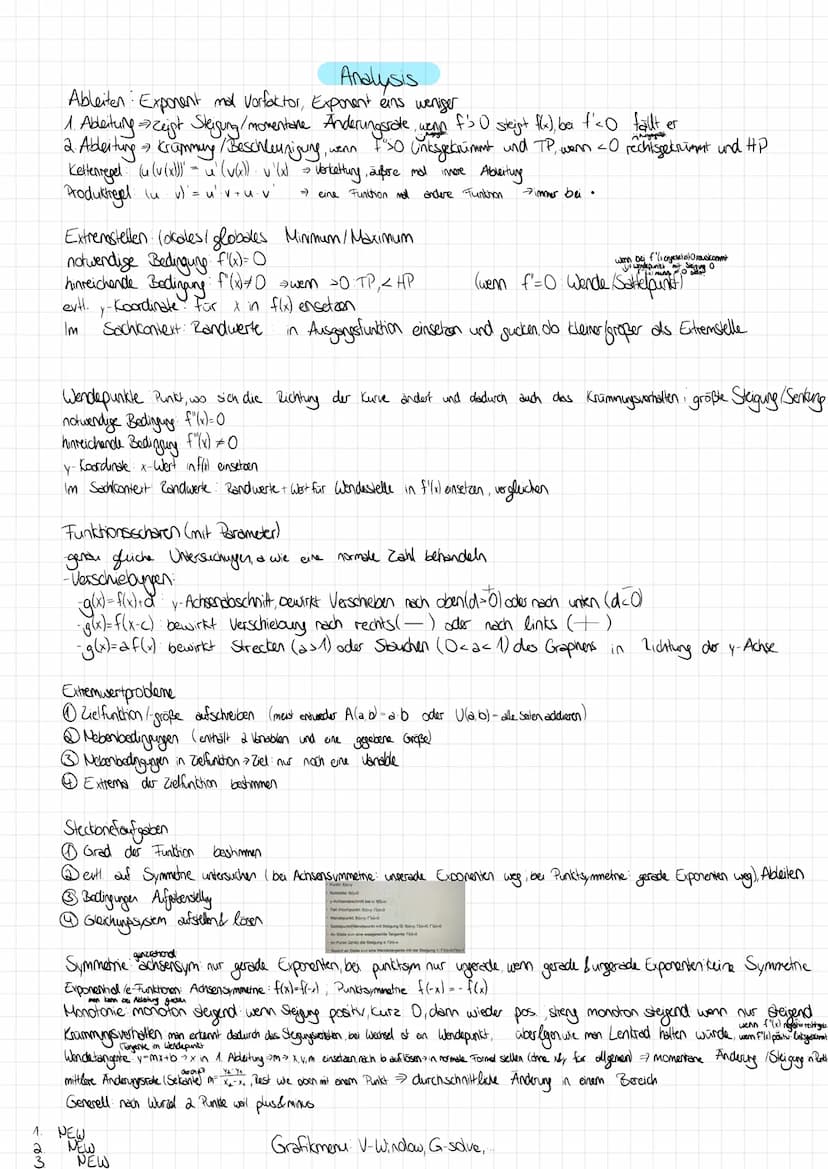 Analysis
Ableiten: Exponent mal Vorfaktor, Exponent eins weniger
1. Ableitung ⇒ zeigt Steigung/momentane Änderungsrate, wenn f'>0 steigt f(x), bei f'<0 fällt er
2. Ableitung → Krümmung/Beschleunigung, wenn f''>0 linksgekrümmt und TP, wenn <0 rechtsgekrümmt und HP
Kettenregel: (u(v(x)))' = u'(v(x)) · v'(x) ⇒ Verkettung, äußere mal innere Ableitung
Produktregel (u · v)' = u' · v + u · v' → eine Funktion mal andere Funktion → immer bei ·
Extremstellen: lokales/globales Minimum/Maximum
notwendige Bedingung: f'(x)=0
hinreichende Bedingung: f''(x)≠0 ⇒ wenn >0: TP, < HP (wenn f''=0: Wende/Sattelpunkt)
evtl. y-Koordinate: für x in f(x) einsetzen
Im Sachkontext: Randwerte in Ausgangsfunktion einsetzen und gucken, ob kleiner/größer als Extremstelle
Wendepunkte: Punkt, wo sich die Richtung der Kurve ändert und dadurch auch das Krümmungsverhalten; größte Steigung/Senkung
notwendige Bedingung: f''(x)=0
hinreichende Bedingung f'''(x) ≠ 0
y-Koordinate: x-Wert in f(x) einsetzen
Im Sachkontext Randwerte: Randwerte + Wert für Wendestelle in f'(x) einsetzen, vergleichen
Funktionsscharen (mit Parameter)
-genau gleiche Untersuchungen, a wie eine normale Zahl behandeln
-Verschiebungen:
-g(x)=f(x)+d: y-Achsenabschnitt, bewirkt Verschieben nach oben (d>0) oder nach unten (d<0)
-g(x)=f(x-c): bewirkt Verschiebung nach rechts (—) oder nach links (+)
-g(x)=a f(x): bewirkt Strecken (a>1) oder Stauchen (0<a<1) des Graphens in Richtung der y-Achse
Extremwertprobleme
① Zielfunktion/-größe aufschreiben (meist entweder A(a,b)=a·b oder U(a,b)= alle Seiten addieren)
② Nebenbedingungen (enthält 2 Variablen und eine gegebene Größe)
③ Nebenbedingungen in Zielfunktion → Ziel: nur noch eine Variable
④ Extrema der Zielfunktion bestimmen
Steckbriefaufgaben
① Grad der Funktion bestimmen
② evtl. auf Symmetrie untersuchen (bei Achsensymmetrie: ungerade Exponenten weg, bei Punktsymmetrie: gerade Exponenten weg), Ableiten
③ Bedingungen Aufgabenstellg
④ Gleichungssystem aufstellen & lösen
Symmetrie: ganzrational achsensym: nur gerade Exponenten, bei punktsym nur ungerade, wenn gerade & ungerade Exponenten: keine Symmetrie
Exponential/e-Funktionen: Achsensymmetrie: f(x)=f(-x), Punktsymmetrie f(-x)=-f(x)
man kann an Ableitung gucken
Monotonie: monoton steigend: wenn Steigung positiv, kurz 0, dann wieder pos., streng monoton steigend wenn nur steigend
Krümmungsverhalten: man erkennt dadurch das Steigungsverhalten, bei Wechsel ist ein Wendepunkt, überlegen wie man Lenkrad halten würde,
Tangente im Wendepunkt
Wendetangente: y=mx+b → x in 1. Ableitung ⇒ m → x,y,m einsetzen, nach b auflösen → in normale Formel stellen ⇒ momentane Änderung/Steigung
mittlere Änderungsrate (Sekante) Rest wie oben mit einem Punkt ⇒ durchschnittliche Änderung in einem Bereich
Generell: nach Wurzel 2 Punkte weil plus & minus
1. NEW
2 NEW
3 NEW
Grafikmenu: V-Window, G-solve,...